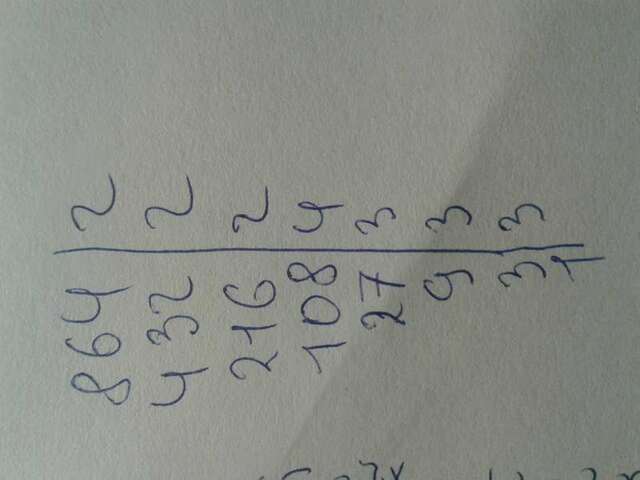 864 | 2
432 | 2
216 | 2
108 | 4
27 | 3
9 | 3
3 | 3
1 |